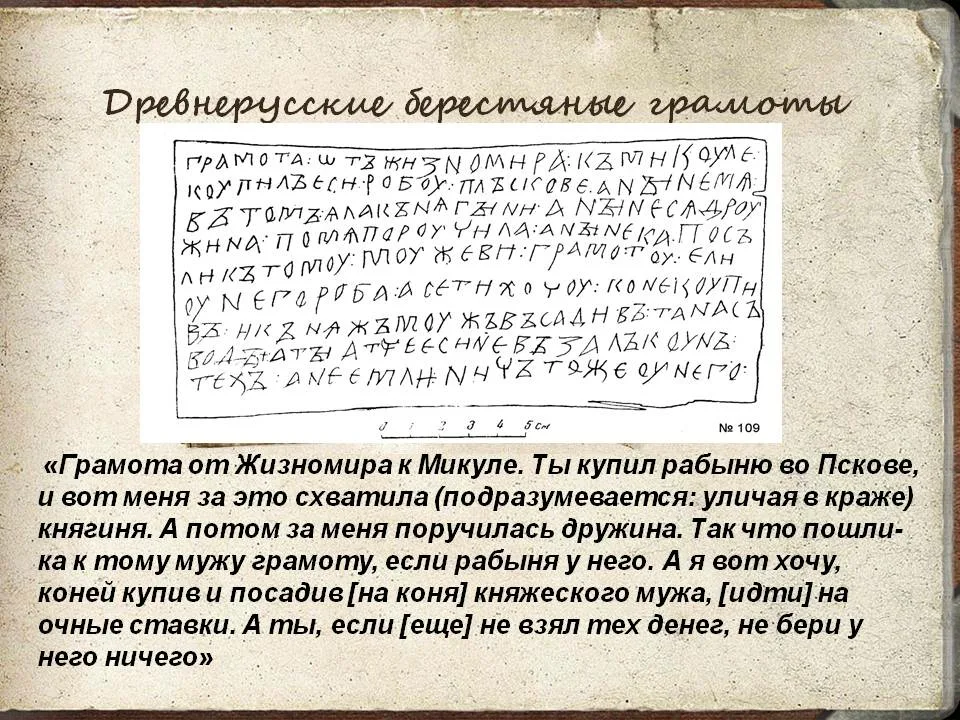 Древнерусские берестяные грамоты
ГРАМОТА : Ѡ ТЪ ЖИЗНОМИРА : КЪ МИКОУЛЕ :
КОУПИЛЪ ЕСИ : РОБОУ : ПЛЪСКОВЕ : А НЪІНЕ МѦ
ВЪ ТОМЪ : АЛА КЪНѦГЪІНИ : А НЪІНЕ СѦ ДРОУ
ЖИНА : ПО МѦ ПОРОУЧИЛА : А НЪІНЕ КА : ПОСЪ
ЛИ КЪ ТОМОУ : МОУЖЕВИ : ГРАМОТОУ : ЕЛИ
ОУ НЕГО РОБА : А СЕ ТИ ХОЧОУ : КОНЕ КОУПИ
ВЪ : И КЪНѦЖЪ МОУЖЪ ВЪСАДИВЪ : ТА НА СЪ
ВОДЪІ : А ТЪІ АТЧЕ ЕСИ НЕ ВЪЗАЛЪ КОУНЪ :
ТЕХЪ : А НЕ ЕМЛИ : НИЧЪТОЖЕ ОУ НЕГО :
0 1 2 3 4 5 см
№ 109
«Грамота от Жизномира к Микуле. Ты купил рабыню во Пскове,
и вот меня за это схватила (подразумевается: уличая в краже)
княгиня. А потом за меня поручилась дружина. Так что пошли-
ка к тому мужу грамоту, если рабыня у него. А я вот хочу,
коней купив и посадив [на коня] княжеского мужа, [идти] на
очные ставки. А ты, если [еще] не взял тех денег, не бери у
него ничего»